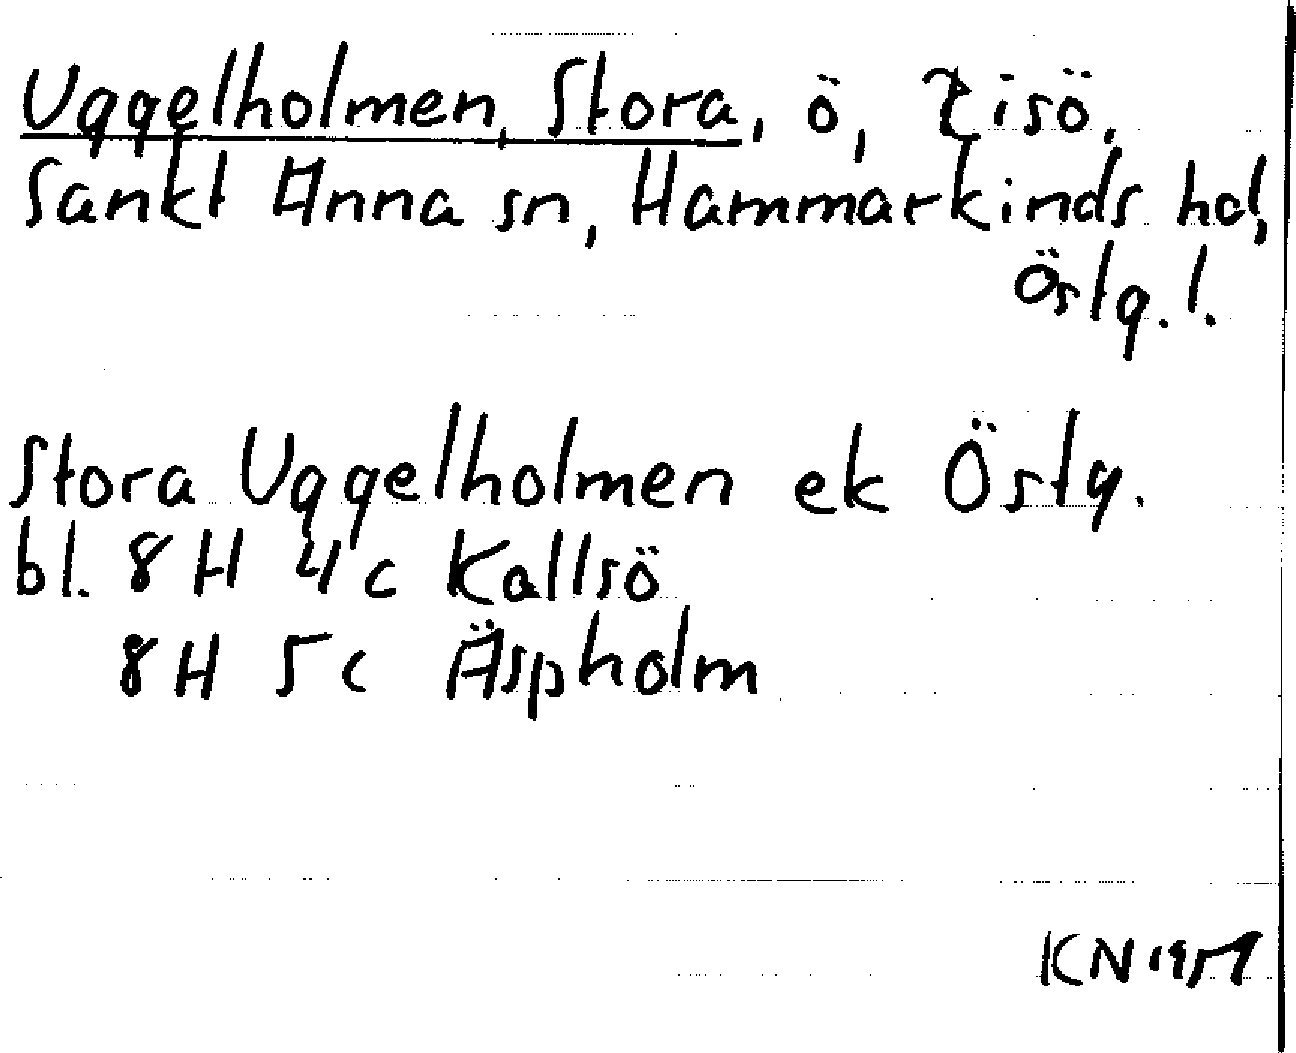 Uggelholmen, Stora, ö, Risö,
Sankt Anna sn, Hammarkinds hd,
Östg. l.
Stora Uggelholmen ek Östg.
bl. 8H 4c Kallsö
8H 5c Äspholm
KN